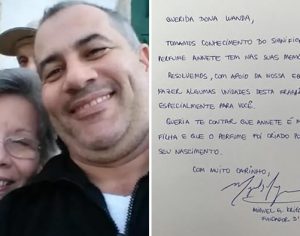 QUERIDA DONA WANDA,
TOMAMOS CONHECIMENTO DO
PERFUME ANNETE TEM NAS SUAS
RESOLVEMOS, COM APOIO DA NOSSA
FAZER ALGUMAS UNIDADES DESTA
ESPECIALMENTE PARA VOCÊ.
QUERIA TE CONTAR QUE ANNETE É
FILHA E QUE O PERFUME FOI CRIADO
SEU NASCIMENTO.
COM MUITO CARINHO,
MIGUEL G. KRIG
FUNDADOR